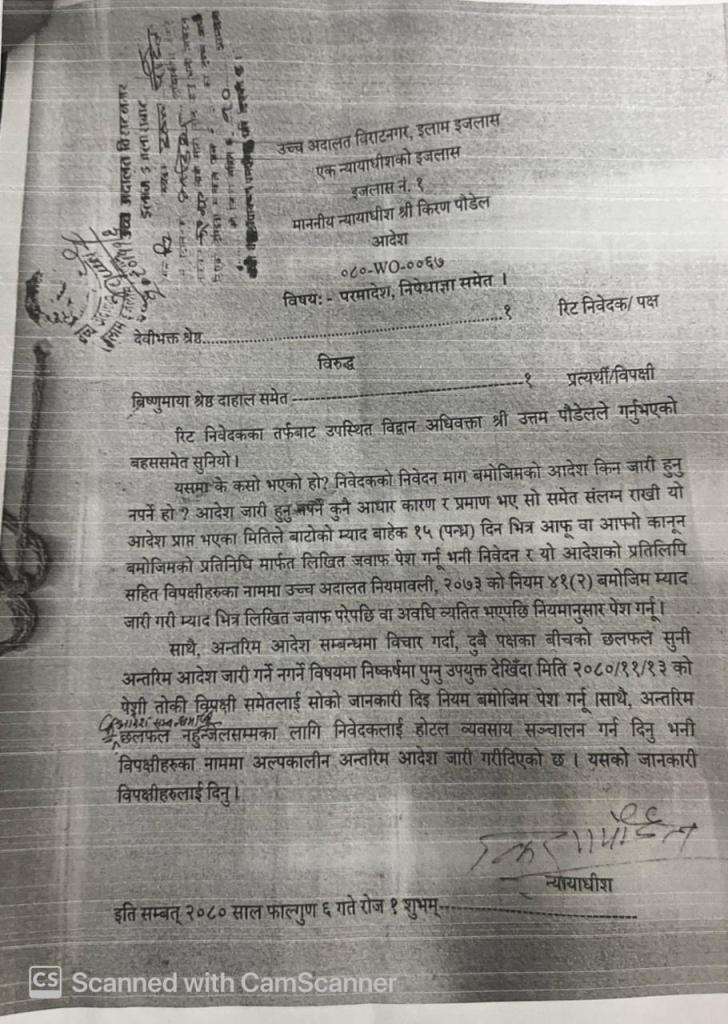 उच्च अदालत विराटनगर
इलाम इजलासबाट
उच्च अदालत विराटनगर, इलाम इजलास
एक न्यायाधीशको इजलास
इजलास नं. १
माननीय न्यायाधीश श्री किरण पौडेल
आदेश
०८०-WO-००६७
विषयः- परमादेश, निषेधाज्ञा समेत ।
देवीभक्त श्रेष्ठ.......................................................१ रिट निवेदक/ पक्ष
विरुद्ध
ब्रिष्णुमाया श्रेष्ठ दाहाल समेत ------------------------------१ प्रत्यर्थी/विपक्षी
रिट निवेदकका तर्फबाट उपस्थित विद्वान अधिवक्ता श्री उत्तम पौडेलले गर्नुभएको
बहससमेत सुनियो ।
यसमा के कसो भएको हो? निवेदकको निवेदन माग बमोजिमको आदेश किन जारी हुनु
नपर्ने हो ? आदेश जारी हुनु नपर्ने कुनै आधार कारण र प्रमाण भए सो समेत संलग्न राखी यो
आदेश प्राप्त भएका मितिले बाटोको म्याद बाहेक १५ (पन्ध्र) दिन भित्र आफू वा आफ्नो कानून
बमोजिमको प्रतिनिधि मार्फत लिखित जवाफ पेश गर्नू भनी निवेदन र यो आदेशको प्रतिलिपि
सहित विपक्षीहरुका नाममा उच्च अदालत नियमावली, २०७३ को नियम ४१(२) बमोजिम म्याद
जारी गरी म्याद भित्र लिखित जवाफ परेपछि वा अवधि व्यतित भएपछि नियमानुसार पेश गर्नू ।
साथै, अन्तरिम आदेश सम्बन्धमा विचार गर्दा, दुबै पक्षका बीचको छलफल सुनी
अन्तरिम आदेश जारी गर्ने नगर्ने विषयमा निष्कर्षमा पुग्नु उपयुक्त देखिँदा मिति २०८०/११/१३ को
पेशी तोकी विपक्षी समेतलाई सोको जानकारी दिइ नियम बमोजिम पेश गर्नू ।साथै, अन्तरिम
आदेश सम्बन्धमा
छलफल नहुन्जेलसम्मका लागि निवेदकलाई होटल व्यवसाय सञ्चालन गर्न दिनु भनी
विपक्षीहरुका नाममा अल्पकालीन अन्तरिम आदेश जारी गरीदिएको छ । यसको जानकारी
विपक्षीहरुलाई दिनु ।
न्यायाधीश
इति सम्बत् २०८० साल फाल्गुण ६ गते रोज १ शुभम्------------------------------
CS Scanned with CamScanner